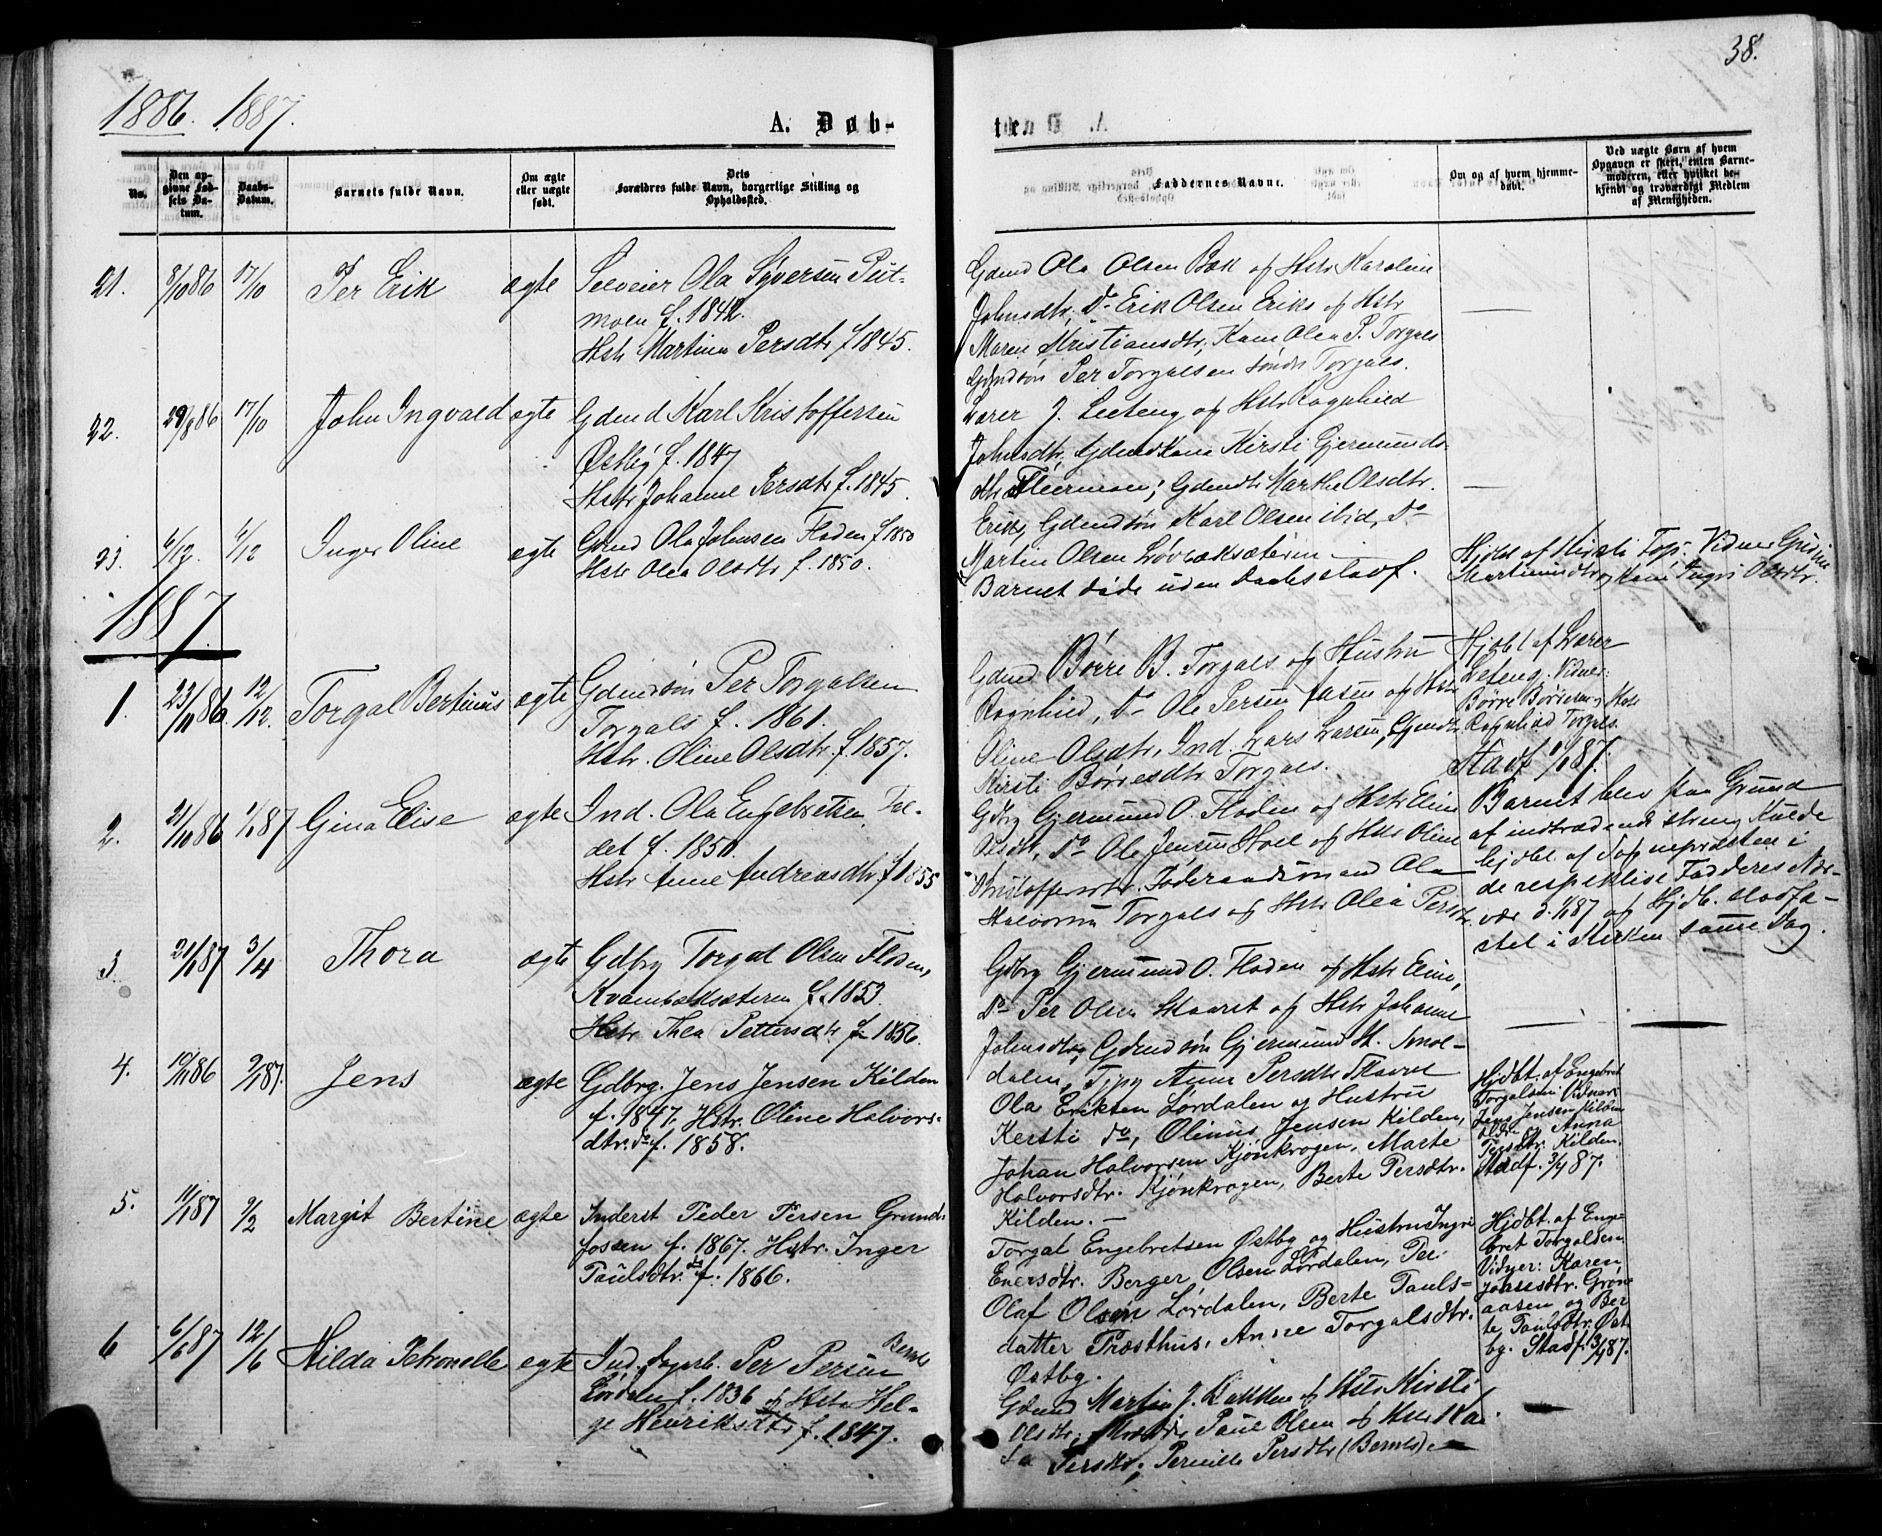 38.
1886. 1887.
A. Døb-
te.
No.
Den op-
givne Fød-
sels Da-
tum.
Daabs-
Datum.
Barnets fulde Navn.
Om ægte
eller uægte
født.
Dets
Forældres fulde Navn, borgerlige Stilling og
Opholdssted.
Faddernes Navne.
Om og af hvem hjemme-
døbt.
Ved uægte Børn af hvem
Opgaven er skeet, enten Barne-
moderen, eller hvilket be-
kjendt og troværdigt Medlem
af Menigheden.
21. 8/10 86 17/10 Per Erik ægte Selveier Ola Syversen
moen f. 1842.
Hstr Martina Persdtr f 1845.
Gdmd Ola Olsen Bak og Hstr Karoline
Johnsdtr, Do Erik Olsen Eriks og Hstr
Maren Kristiansdtr, Kone Olea P. Torgals
Gdmdsøn Per Torgalsen søndr Torgals.
22. 29/8 86 17/10 John Ingvald ægte Gdmd Karl Kristoffersen
Østby f. 1847
Hstr Johanne Persdtr f. 1845.
Lærer J. Leeteng og Hstr Ragnhild
Johnsdtr, Gdmdkone Kirsti Gjermunds-
dtr Fleermoen; Gdmdtr Marthe Olsdtr.
Eriks, Gdmdsøn Karl Olsen ibid, Do
Martin Olsen
23. 6/12. 6/12 Inger Oline ægte Gdmd Ola Johnsen Floden f 1850
Hstr Olea Olsdtr f. 1850.
Barnet døde uden Daabsstadf.
Hjdbt af Kirsti Vidner
Martinusdtr og Kone Ingri Olsdtr.
1887.
1. 23/11 86 12/12. Torgal Bertinus ægte Gdmdsøn Per Torgalsen
Torgals f. 1861.
Hstr. Oline Olsdtr f. 1857.
Gdmd Børre B. Torgals og Hustru
Ragnhild, Do Ole Persen Aasen og Hstr
Oline Olsdtr, Ind. Lars Larsen, Gjmdtr
Kirsti Børresdtr Torgals.
Hjdbt af Lærer
Leteng. Vidner:
Børre Børresen og Hstr
Ragnhild Torgals.
Stadf 1/1 87.
2. 21/10 86 1/1 87 Gina Elise ægte Ind. Ola Engebretsen Fal-
det f. 1850.
Hstr Anne Andreasdtr f 1855
Gdbrg Gjermund O. Floden og Hstr Eline
Olsdtr, Do Ole Jensen Hoel og Hstr Oline
Kristoffersdtr. Føderaadsmand Ola
Halvorsen Torgals og Hstr Olea Persdtr
Barnet blev paa Grund
af indtrædende streng Kulde
hjdbt. af Sognepræsten i
de respektive Fadderes Nær-
vær d. 1/1 87 og Hjdb. stadfæ-
stet i Kirken samme Dag.
3. 21/1 87 3/4 Thora ægte Gdbrg Torgal Olsen Floden,
Kvambæksæteren f. 1853.
Hstr Thea Pettersdtr f. 1856.
Gdbrg Gjermund O. Floden og Hstr Eline,
Do Per Olsen Skaaret og Hstr Johanne
Johnsdtr, Gdmdsøn Gjermund H. Smol-
dalen, Tjpg Anne Persdtr Skaaret
4. 19/11 86 2/1 87. Jens ægte Gdbrg. Jens Jensen Kilden
f. 1847, Hstr. Oline Halvors-
dtr. do f. 1858.
Ola Eriksen Lørdalen og Hustru
Kersti do, Olinus Jensen Kilden,
Johan Halvorsen Kjønkrogen, Marte
Halvorsdtr. Kjønkrogen, Berte Persdtr.
Kilden. —
Hjdbt. af Engebret
Torgalsen Vidner:
Jens Jensen Kilden
og Anna
Kilden.
Stadf. 3/4 87.
5. 11/1 87 9/2 Margit Bertine ægte Inderst Peder Persen Grund-
fossen f. 1867. Hstr. Inger
Paulsdtr. do f. 1866.
Torgal Engebretsen Østbg og Hustru Ingri
Enersdtr. Berger Olsen Lørdalen, Per
Olaf Olsen Lørdalen, Berte Pauls-
datter Præsthus, Anne Torgalsdtr.
Østbg.
Hjdbt. af Enge-
bret Torgalsen
Vidner: Karen
Johnsdtr. Grøn-
aasen og Ber-
te Paulsdtr. Øst-
bg. Stadf. 3/4 87.
6 6/6 87 12/6 Hilda Petronelle ægte Ind. Per Persen Bernts
Lørdalen f. 1836 og Hstr Hel-
ge Henriksdtr f. 1847.
Gdmd Martin J. Bakken og Hstr Kirsti
Olsdtr; Paul Olsen og Hstr Ka-
Persdtr; Pernille Persdtr (Bernts)